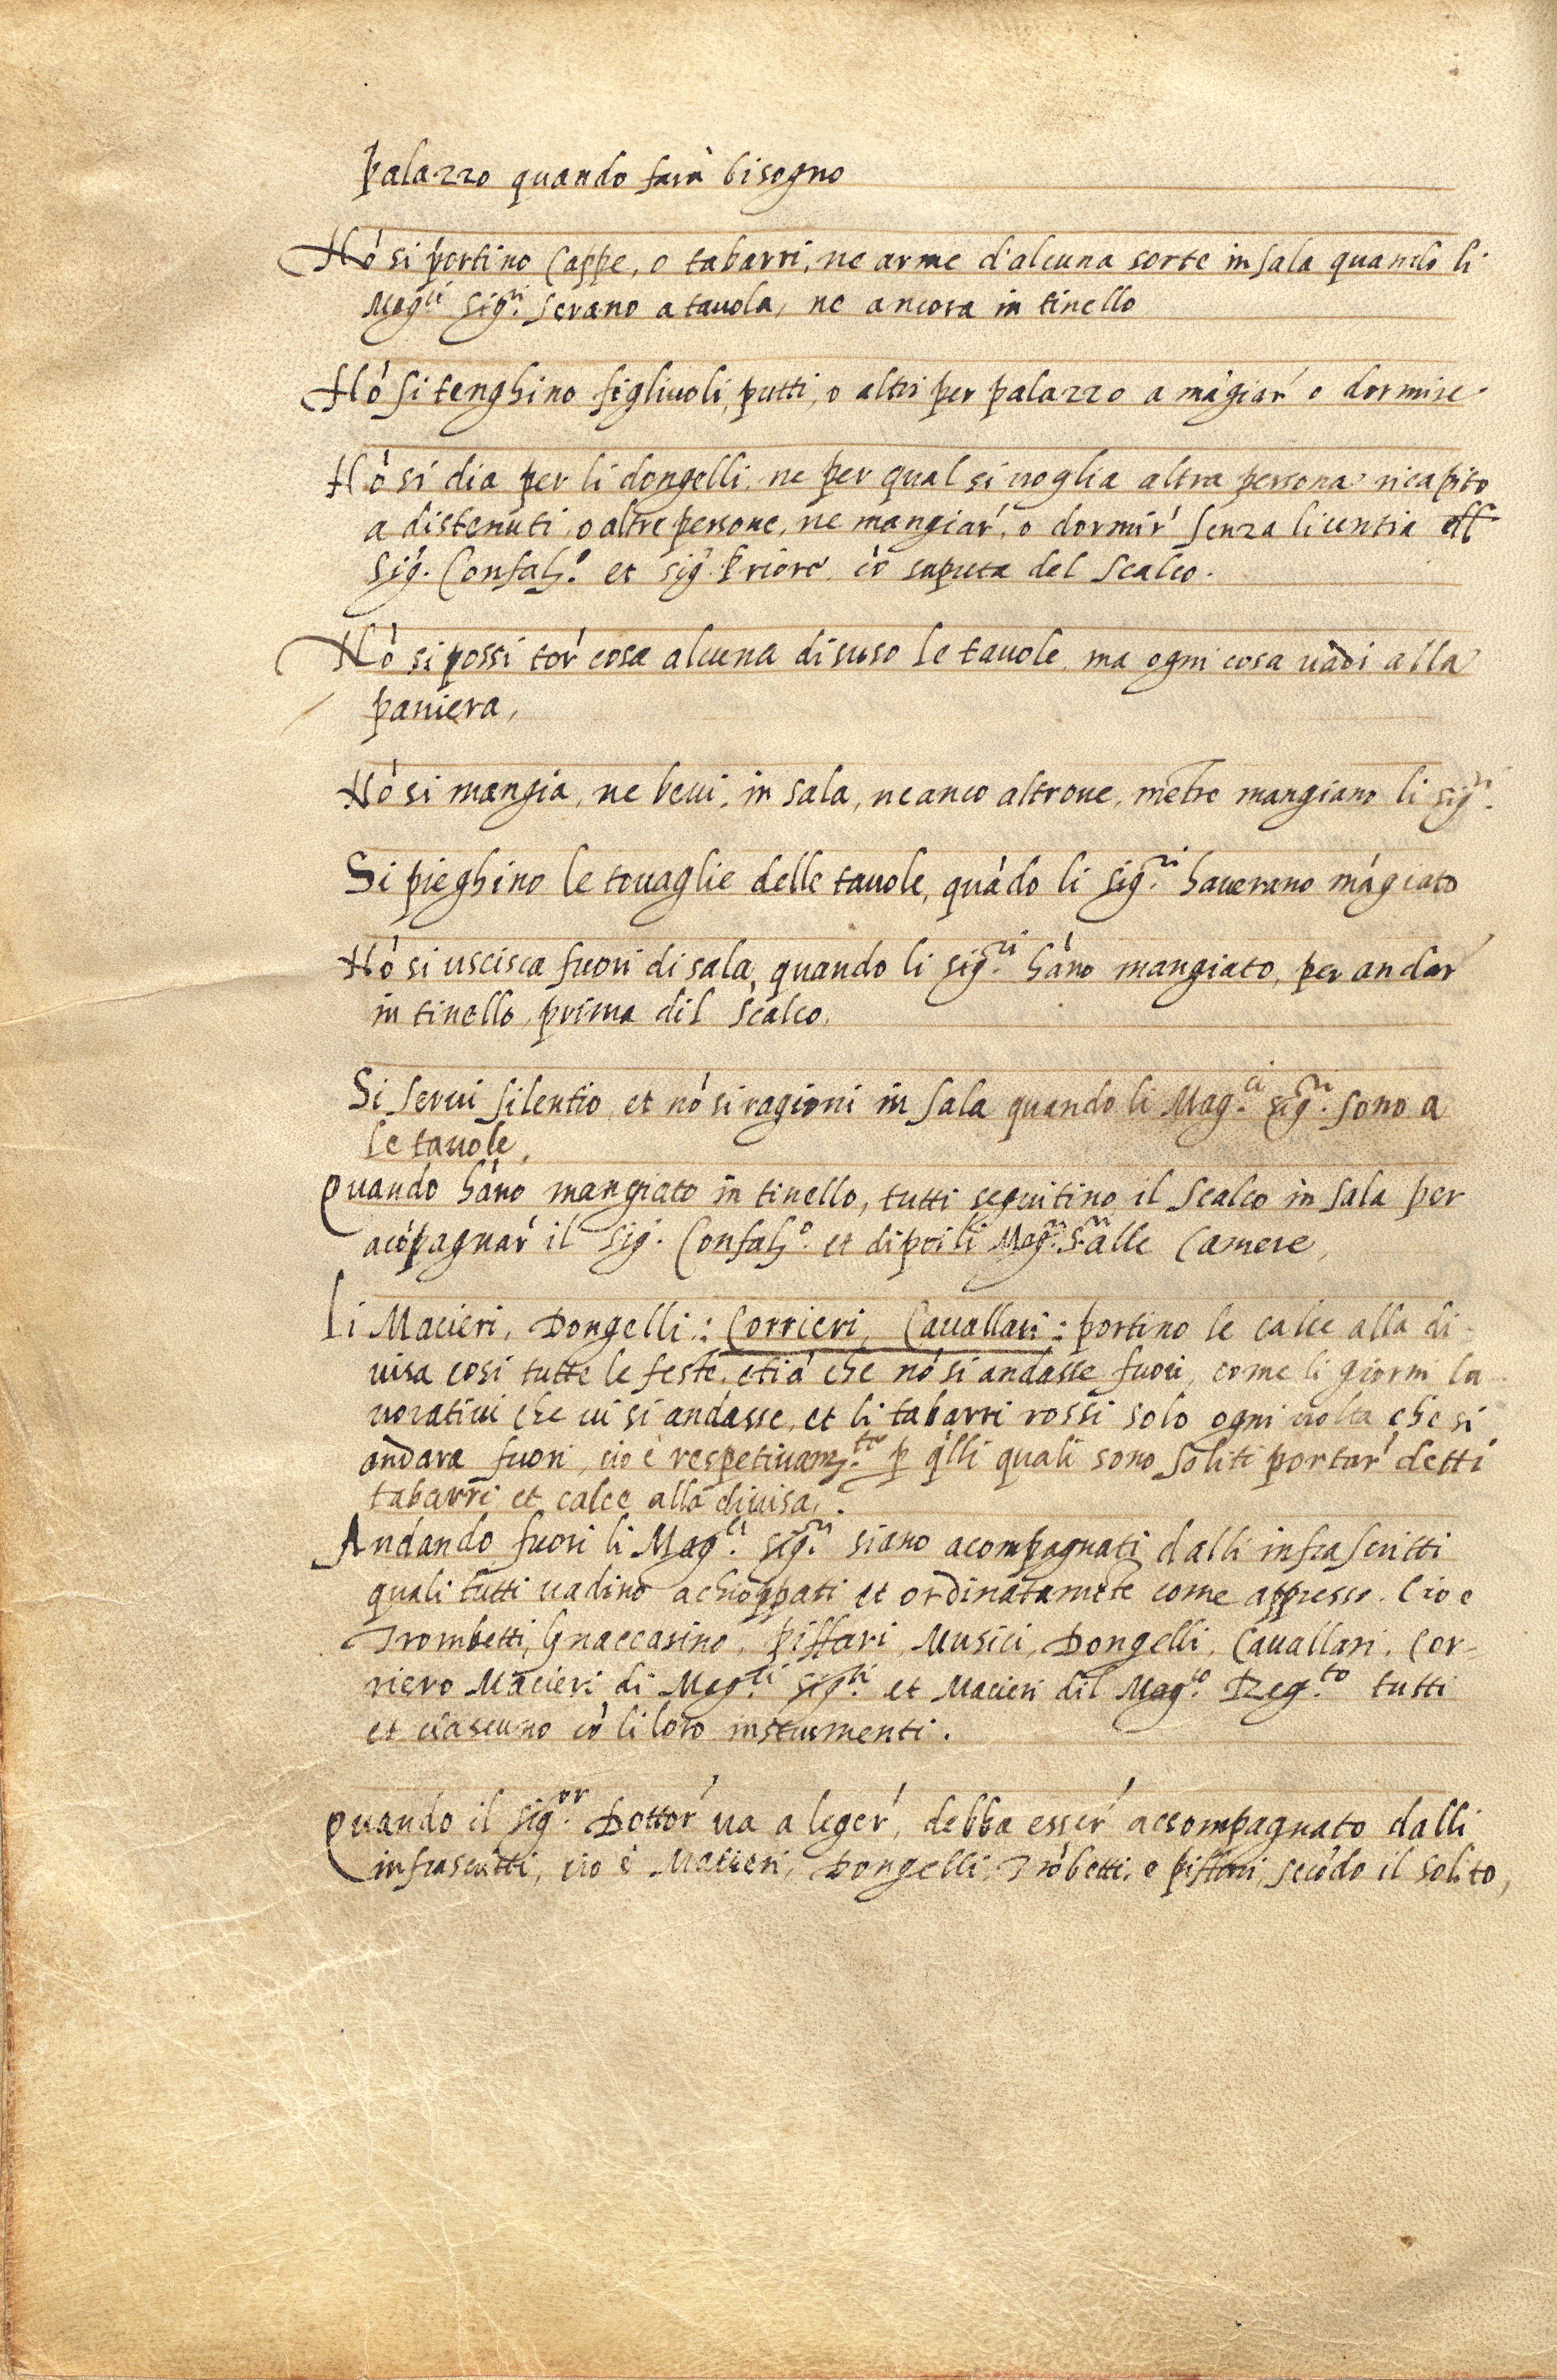 palazzo quando farà bisogno
Nó si portino Cappe, o tabarri, ne arme d'alcuna sorte in sala quando li
Mag.ci Sig.ri serano a tauola, ne ancora in tinello
Nó si tenghino figliuoli, putti, o altri per palazzo a mágiar' o dormire.
Nó si dia per li dongelli, ne per qual si uoglia altra persona ricapito
a distenuti, o altre persone, ne mangiar', o dormir' senza licentia
Sig. Confal.o et sig. Priore có saputa del Scalco.
Nó si possi tor' cosa alcuna di suso le tauole, ma ogni cosa uadi alla
paniera,
Nó si mangia, ne beui, in sala, ne anco altroue, métre mangiano li sig.ri
Si pieghino le touaglie delle tauole, quádo li sig.ri haverano mágiato
Nó si uscisca fuori di sala, quando li sig.ri háno mangiato, per andar'
in tinello, prima dil Scalco.
Si serui silentio et nó si ragioni in sala quando li Mag.ci sig.ri sono a
le tauole,
Quando háno mangiato in tinello, tutti seguitino il Scalco in sala per
acópagnar' il Sig. Confal.o et di poi li Mag.ci S.ri alle Camere,
Li Macieri, Dongelli: Corrieri, Cauallari: portino le calce alla di-
uisa cosi tutte le feste, etiá che nó si andasse fuori, come li giorni la-
uoratiui che ui si andasse, et li tabarri rossi solo ogni uolta che si
andara fuori, cio è respetiuam.te p q'lli quali sono soliti portar' detti
tabarri et calce alla diuisa,
Andando fuori li Mag.ci sig.ri siano acompagnati dalli infrascritti
quali tutti uadino achioppati et ordinataméte come appresso. Cio e
Trombetti, Gnaccarino, Piffari, Musici, Dongelli, Cauallari, Cor-
riero Macieri di Mag.ci sig.ri et Macieri dil Mag.co Reg.to tutti
et ciascuno có li loro instrumenti.
Quando il sig.or Dottor' ua a leger', debba esser' accompagnato dalli
infrascritti, cio è Macieri, Dongelli, Trόbetti, e piffari, secódo il solito,